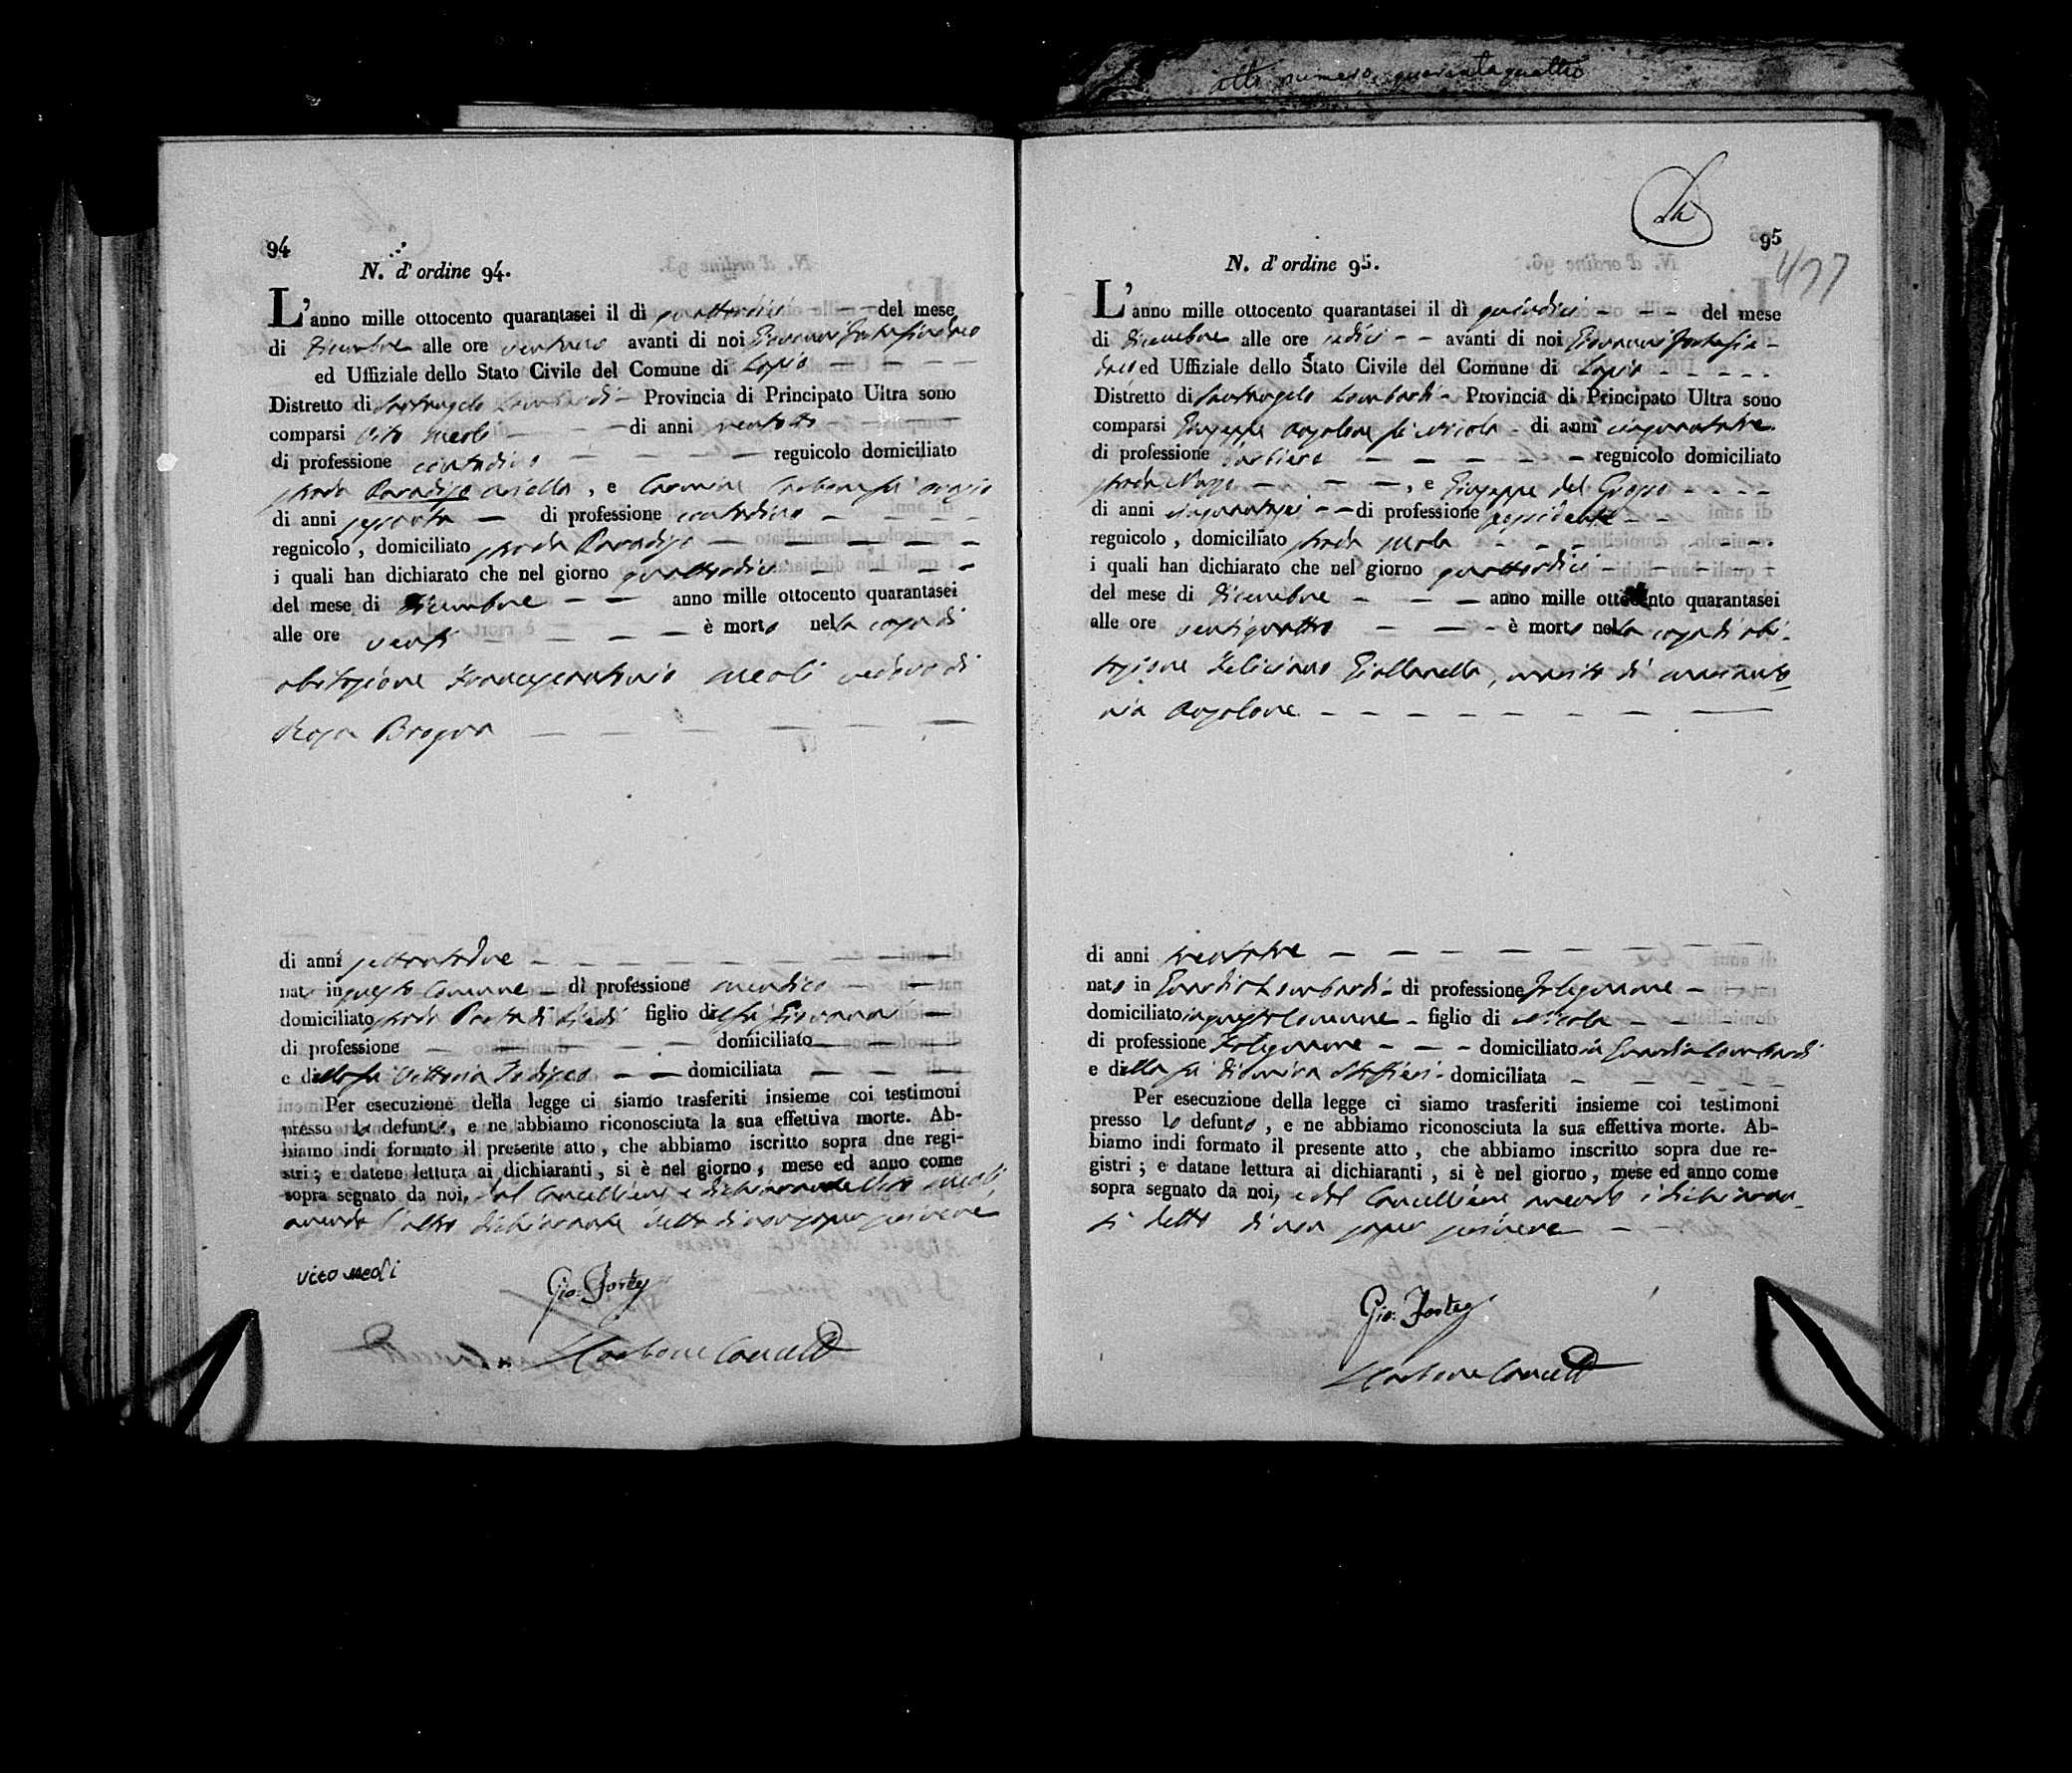 atto numero quarantaquattro
94
N. d' ordine 94.
L'anno mille ottocento quarantasei il dì quattordici del mese
di Dicembre alle ore ventuno avanti di noi Giovanni Forte Sindaco
ed Uffiziale dello Stato Civile del Comune di Lapio
Distretto di Santangelo Lombardi Provincia di Principato Ultra sono
comparsi Vito Meoli di anni ventotto
di professione contadino regnicolo domiciliato
strada Paradiso , e Carmine Carbone fu
di anni sessanta di professione contadino
regnicolo , domiciliato strada Paradiso
i quali han dichiarato che nel giorno quattordici
del mese di Dicembre anno mille ottocento quarantasei
alle ore venti è morto nella casa di
abitazione Francescantonio Meoli vedovo di
Rosa
di anni settantadue
nato in questo Comune di professione mendico
domiciliato strada figlio del fu Giovanni
di professione domiciliato
e della fu Vittoria domiciliata
Per esecuzione della legge ci siamo trasferiti insieme coi testimoni
presso lo defunto, e ne abbiamo riconosciuta la sua effettiva morte. Ab-
biamo indi formato il presente atto , che abbiamo iscritto sopra due regi-
stri ; e datene lettura ai dichiaranti , si è nel giorno , mese ed anno come
sopra segnato da noi, dal Cancelliere e dichiarante Vito Meoli,
avendo l'altro dichiarante detto di non saper scrivere
Vito Meoli
Gio: Forte
Carbone Cancell
95
477
N. d' ordine 95.
L'anno mille ottocento quarantasei il dì quindici del mese
di Dicembre alle ore sedici avanti di noi Giovanni Forte Sin-
daco ed Uffiziale dello Stato Civile del Comune di Lapio
Distretto di Santangelo Lombardi Provincia di Principato Ultra sono
comparsi Giuseppe Anzalone fu Nicola di anni cinquantatre
di professione barbiere regnicolo domiciliato
strada , e Giuseppe del Grosso
di anni cinquantasei di professione possidente
regnicolo , domiciliato strada
i quali han dichiarato che nel giorno quattordici
del mese di Dicembre anno mille ottocento quarantasei
alle ore ventiquattro è morto nella casa di abi-
tazione Feliciano Giallanella, marito di Marianto
nia Anzalone
di anni trentatre
nato in Guardia Lombardi di professione Falegname
domiciliato in questo Comune figlio di Nicola
di professione Falegname domiciliato in Guardia Lombardi
e della fu domiciliata
Per esecuzione della legge ci siamo trasferiti insieme coi testimoni
presso lo defunto , e ne abbiamo riconosciuta la sua effettiva morte. Ab-
biamo indi formato il presente atto , che abbiamo inscritto sopra due re-
gistri ; e datane lettura ai dichiaranti , si è nel giorno , mese ed anno come
sopra segnato da noi, e dal Cancelliere avendo i dichiaran-
ti detto di non saper scrivere
Gio: Forte
Carbone Cancell